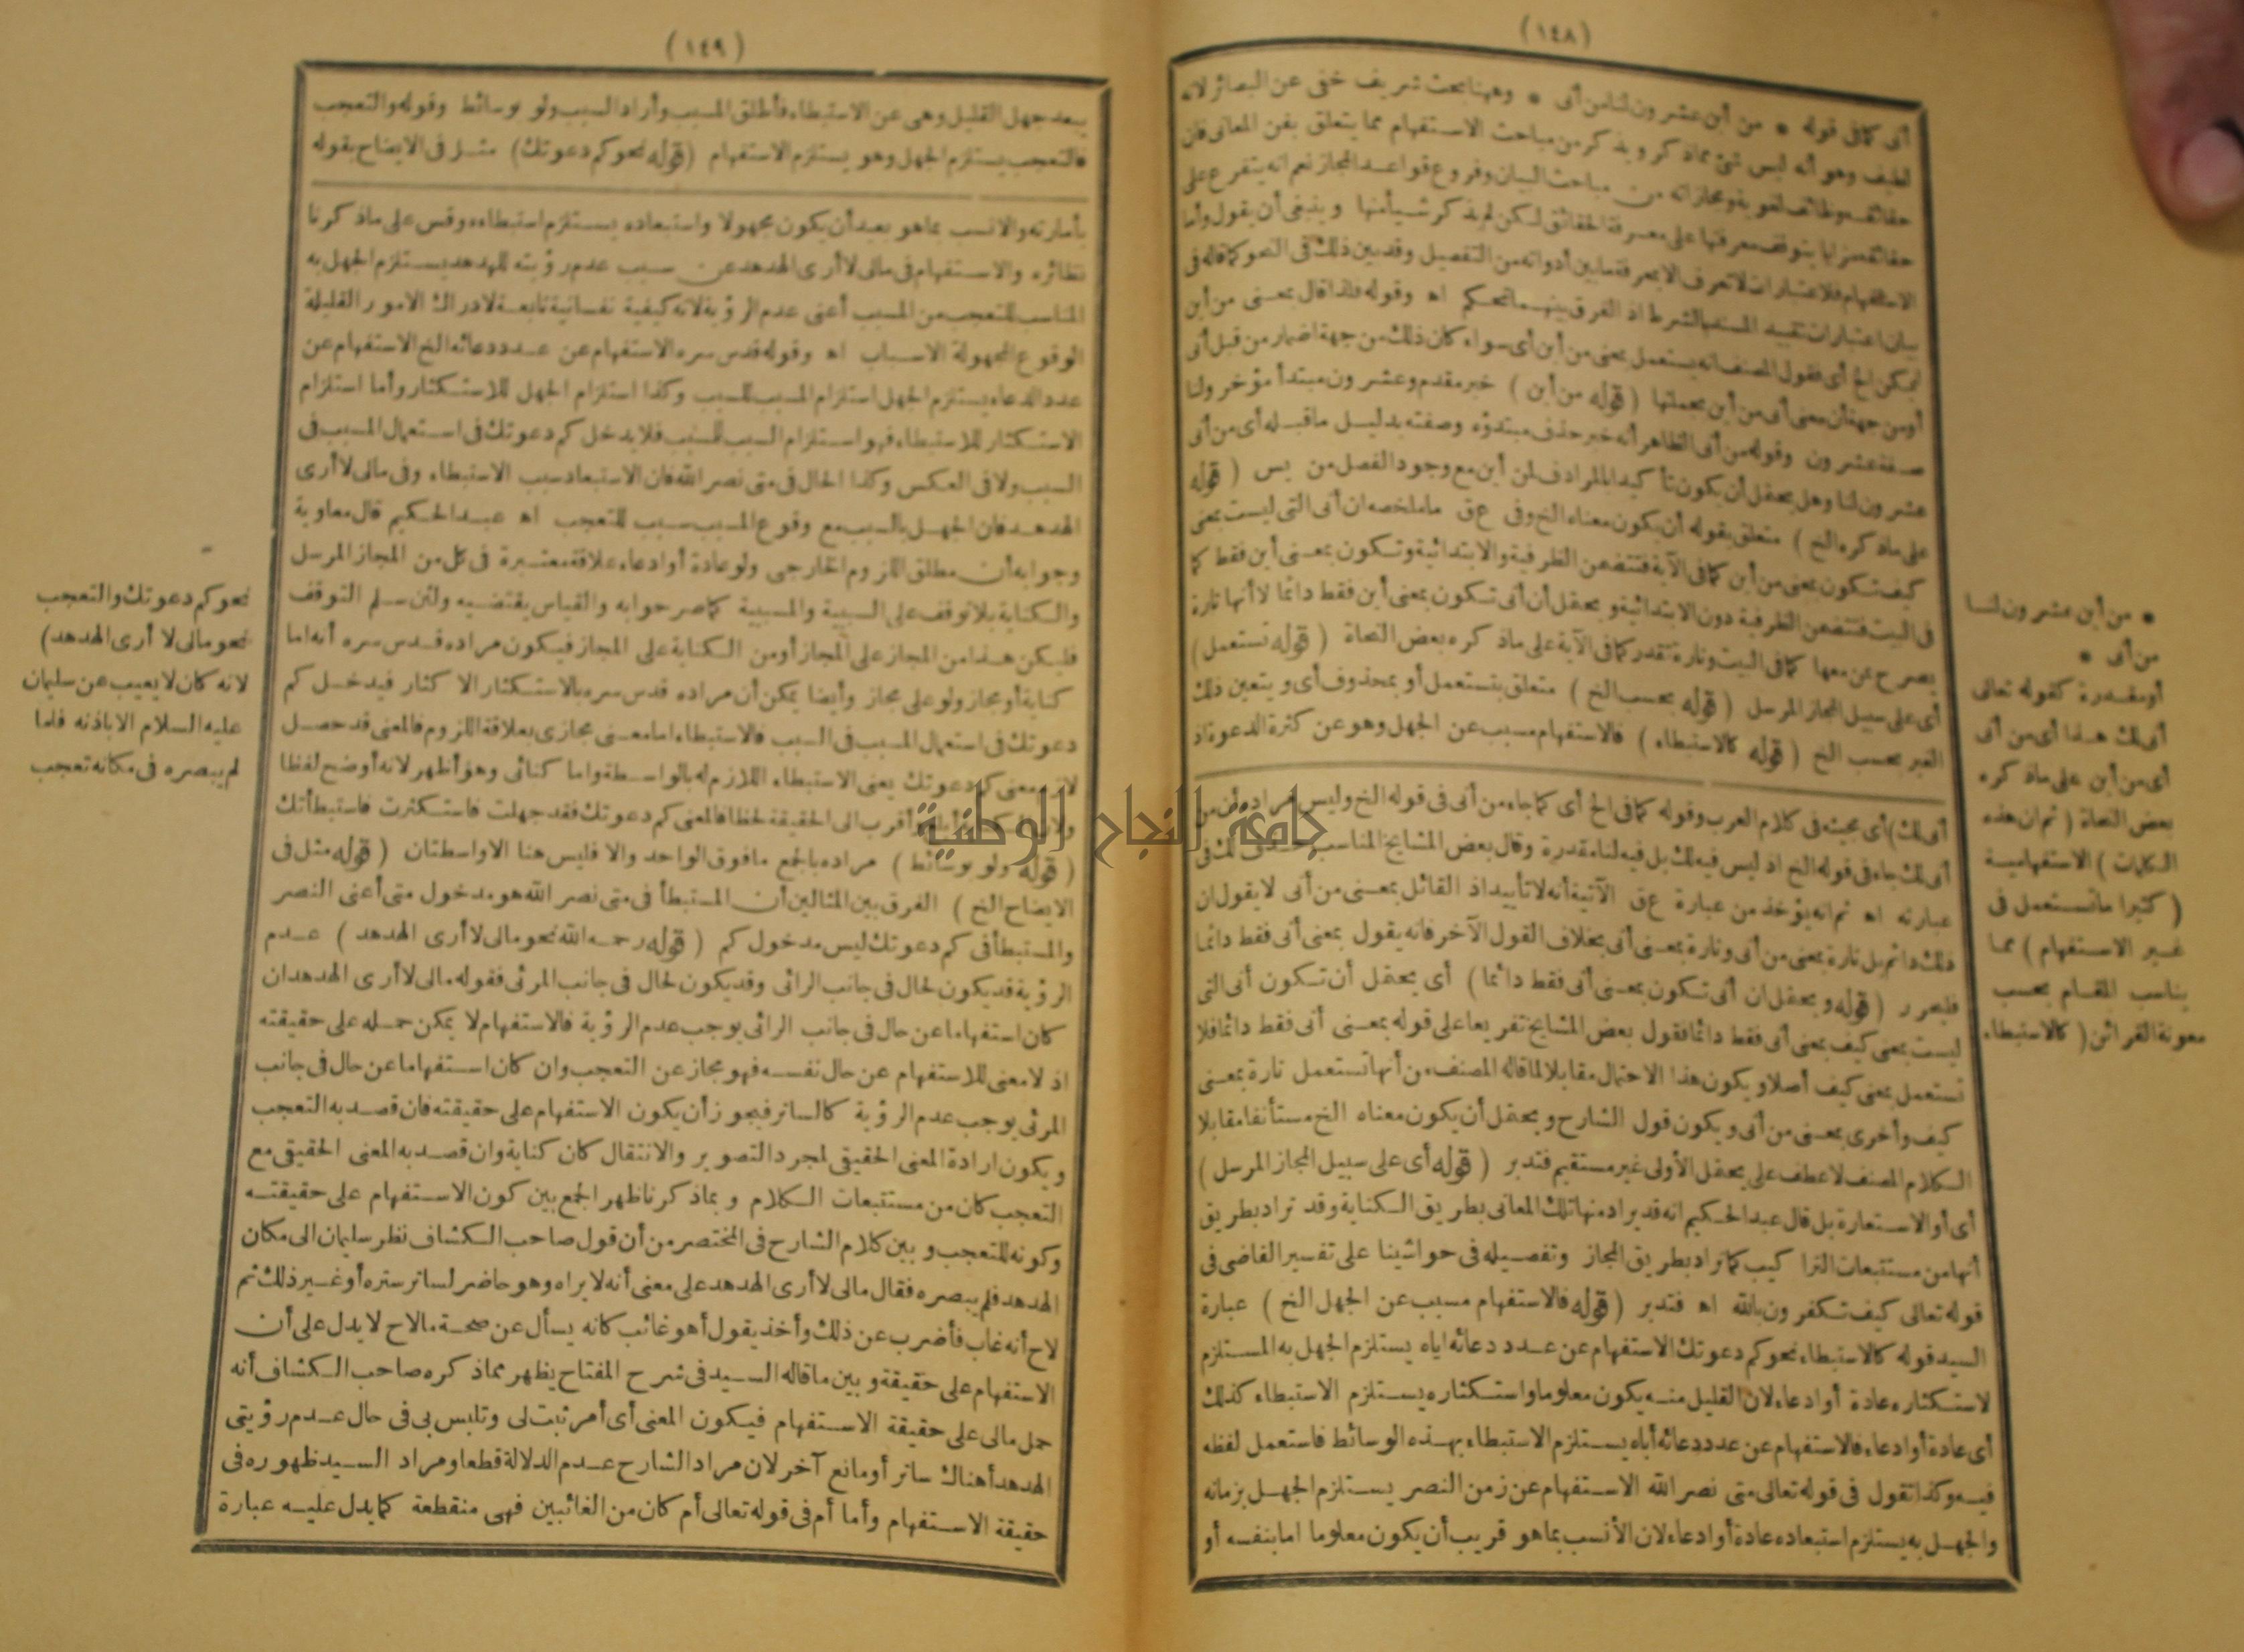 (١٤٨)
أى كما فى قوله * من أين عشرون لنا من أنى * وههنا بحث شريف خفى عن البصائر لانه
لطيف وهو أنه ليس شئ مماذكر ويذكر من مباحث الاستفهام مما يتعلق بفن المعانى فان
حقائقه وظائف لغوية ومجازاته من مباحث البيان وفروع قواعد المجاز نعم انه يتفرع على
حقائقه مزايا يتوقف معرفتها على معرفة الحقائق لكن لم يذكر شيأ منها وينبغى أن يقول وأما
الاستفهام فلاعتبارات لا تعرف الا بمعرفة ما بين أدواته من التفصيل وقد بين ذلك فى النحو كما قاله فى
بيان اعتبارات تقييد المسند بالشرط اذ الفرق بينهما تحكم اه وقوله فلذا قال بمعنى من أين
لم يمكن الخ أى فقول المصنف انه يستعمل بمعنى من أين أى سواء كان ذلك من جهة اضمار من قبل أنى
أو من جهة أن معنى أنى من أين بجملتها (قوله من أين) خبر مقدم وعشرون مبتدأ مؤخر ولنا
صفة عشرون وقوله من أنى الظاهر أنه خبر حذف مبتدؤه وصفته بدليل ما قبله أى من أنى
عشرون لنا وهل يحتمل أن يكون تأكيدا بالمرادف لمن أين مع وجود الفصل من يس (قوله
على ماذكره الخ) متعلق بقوله أن يكون معناه الخ وفى ع ق ما ملخصه ان أنى التى ليست بمعنى
كيف تكون بمعنى من أين كما فى الآية فتتضمن الظرفية والابتدائية وتكون بمعنى أين فقط كما
فى البيت فتتضمن الظرفية دون الابتدائية ويحتمل أن أنى تكون بمعنى أين فقط دائما لا أنها تارة
يصرح بمن معها كما فى البيت وتارة تقدر كما فى الآية على ماذكره بعض النحاة (قوله تستعمل)
أى على سبيل المجاز المرسل (قوله بحسب الخ) متعلق بتستعمل أو بمحذوف أى ويتعين ذلك
الغير بحسب الخ (قوله كالاستبطاء) فالاستفهام مسبب عن الجهل وهو عن كثرة الدعوة اذ
أنى لك) أى مجيئه فى كلام العرب وقوله كما فى الخ أى كما جاء من أنى فى قوله الخ وليس مراده أن من
أنى لك جاء فى قوله الخ اذ ليس فيه لك بل فيه لنا مقدرة وقال بعض المشايخ المناسب لك فى
عبارته اه ثم انه يؤخذ من عبارة ع ق الآتية أنه لا تأييد اذ القائل بمعنى من أنى لا يقول ان
ذلك دائم بل تارة بمعنى من أنى وتارة بمعنى أنى بخلاف القول الآخر فانه يقول بمعنى أنى فقط دائما
فليحرر (قوله ويحتمل ان أنى تكون بمعنى أنى فقط دائما) أى يحتمل أن تكون أنى التى
ليست بمعنى كيف بمعنى أنى فقط دائما فقول بعض المشايخ تفريعا على قوله بمعنى أنى فقط دائما فلا
تستعمل بمعنى كيف أصلا ويكون هذا الاحتمال مقابلا لما قاله المصنف من أنها تستعمل تارة بمعنى
كيف وأخرى بمعنى من أنى ويكون قول الشارح ويحتمل أن يكون معناه الخ مستأنفا مقابلا
الكلام المصنف لا عطف على محتمل الأولى غير مستقيم فتدبر (قوله أى على سبيل المجاز المرسل)
أى أو الاستعارة بل قال عبد الحكيم انه قد يراد منها تلك المعانى بطريق الكناية وقد تراد بطريق
أنها من مستتبعات التراكيب كما تراد بطريق المجاز وتفصيله فى حواشينا على تفسير القاضى فى
قوله تعالى كيف تكفرون بالله اه فتدبر (قوله فالاستفهام مسبب عن الجهل الخ) عبارة
السيد قوله كالاستبطاء نحو كم دعوتك الاستفهام عن عدد دعائه اياه يستلزم الجهل به المستلزم
لاستكثاره عادة أو ادعاء لان القليل منه يكون معلوما واستكثاره يستلزم الاستبطاء كذلك
أى عادة أو ادعاء فالاستفهام عن عدد دعائه أياه يستلزم الاستبطاء بهذه الوسائط فاستعمل لفظه
فيه وكذا تقول فى قوله تعالى متى نصر الله الاستفهام عن زمن النصر يستلزم الجهل بزمانه
والجهل به يستلزم استبعاده عادة أو ادعاء لان الأنسب بما هو قريب أن يكون معلوما اما بنفسه أو
* من أين عشرون لنا
من أنى *
أو مقدرة كقوله تعالى
أنى لك هذا أى من أنى
أى من أين على ماذكره
بعض النحاة (ثم ان هذه
الكلمات) الاستفهامية
(كثيرا ما تستعمل فى
غير الاستفهام) مما
يناسب المقام بحسب
معونة القرائن (كالاستبطاء
(١٤٩)
يبعد جهل القليل وهى عن الاستبطاء فأطلق المسبب وأراد السبب ولو بوسائط وقوله والتعجب
فالتعجب يستلزم الجهل وهو يستلزم الاستفهام (قوله نحو كم دعوتك) مثل فى الايضاح بقوله
بأمارته والانسب بما هو بعيد أن يكون مجهولا واستبعاده يستلزم استبطاءه وقس على ماذكرنا
نظائره والاستفهام فى مالى لا أرى الهدهد عن سبب عدم رؤيته للهدهد يستلزم الجهل به
المناسب للتعجب من المسبب أعنى عدم الرؤية لانه كيفية نفسانية تابعة لادراك الامور القليلة
الوقوع المجهولة الاسباب اه وقوله قدس سره الاستفهام عن عدد دعائه الخ الاستفهام عن
عدد الدعاء يستلزم الجهل استلزام المسبب للسبب وكذا استلزام الجهل للاستكثار وأما استلزام
الاستكثار للاستبطاء فهو استلزام السبب للمسبب فلا يدخل كم دعوتك فى استعمال المسبب فى
السبب ولا فى العكس وكذا الحال فى متى نصر الله فان الاستبعاد سبب الاستبطاء وفى مالى لا أرى
الهدهد فان الجهل بالسبب مع وقوع المسبب سبب للتعجب اه عبد الحكيم قال معاوية
وجوابه أن مطلق اللزوم الخارجى ولو عادة أو ادعاء علاقة معتبرة فى كل من المجاز المرسل
والكناية بلا توقف على السببية والمسببية كما صرحوا به والقياس يقتضيه ولئن سلم التوقف
فليكن هذا من المجاز على المجاز أو من الكناية على المجاز فيكون مراده قدس سره أنه اما
كناية أو مجاز ولو على مجاز وأيضا يمكن أن مراده قدس سره بالاستكثار الاكثار فيدخل كم
دعوتك فى استعمال المسبب فى السبب فالاستبطاء اما معنى مجازى بعلاقة اللزوم فالمعنى قد حصل
لازم معنى كم دعوتك يعنى الاستبطاء اللازم له بالواسطة واما كنائى وهو أظهر لانه أوضح لفظا
ولأن أبلغ وأقرب الى الحقيقة لحظا فالمعنى كم دعوتك فقد جهلت فاستكثرت فاستبطأتك
(قوله ولو بوسائط) مراده بالجمع ما فوق الواحد والا فليس هنا الا واسطتان (قوله مثل فى
الايضاح الخ) الفرق بين المثالين أن المستبطأ فى متى نصر الله هو مدخول متى أعنى النصر
والمستبطأ فى كم دعوتك ليس مدخول كم (قوله رحمه الله نحو مالى لا أرى الهدهد) عدم
الرؤية قد يكون لحال فى جانب الرائى وقد يكون لحال فى جانب المرئى فقوله مالى لا أرى الهدهد ان
كان استفهاما عن حال فى جانب الرائى يوجب عدم الرؤية فالاستفهام لا يمكن حمله على حقيقته
اذ لا معنى للاستفهام عن حال نفسه فهو مجاز عن التعجب وان كان استفهاما عن حال فى جانب
المرئى يوجب عدم الرؤية كالساتر فيجوز أن يكون الاستفهام على حقيقته فان قصد به التعجب
ويكون ارادة المعنى الحقيقى لمجرد التصوير والانتقال كان كناية وان قصد به المعنى الحقيقى مع
التعجب كان من مستتبعات الكلام وبماذكرنا ظهر الجمع بين كون الاستفهام على حقيقته
وكونه للتعجب وبين كلام الشارح فى المختصر من أن قول صاحب الكشاف نظر سليمان الى مكان
الهدهد فلم يبصره فقال مالى لا أرى الهدهد على معنى أنه لا يراه وهو حاضر لساتر ستره أو غير ذلك ثم
لاح أنه غاب فأضرب عن ذلك وأخذ يقول أهو غائب كانه يسأل عن صحة ما لاح لا يدل على أن
الاستفهام على حقيقة وبين ما قاله السيد فى شرح المفتاح يظهر مماذكره صاحب الكشاف أنه
حمل مالى على حقيقة الاستفهام فيكون المعنى أى أمر ثبت لى وتلبس بى فى حال عدم رؤيتى
الهدهد أهناك ساتر أو مانع آخر لان مراد الشارح عدم الدلالة قطعا ومراد السيد ظهوره فى
حقيقة الاستفهام وأما أم فى قوله تعالى أم كان من الغائبين فهى منقطعة كما يدل عليه عبارة
نحو كم دعوتك والتعجب
نحو مالى لا أرى الهدهد)
لانه كان لا يغيب عن سليمان
عليه السلام الا باذنه فلما
لم يبصره فى مكانه تعجب
جامعة النجاح الوطنية